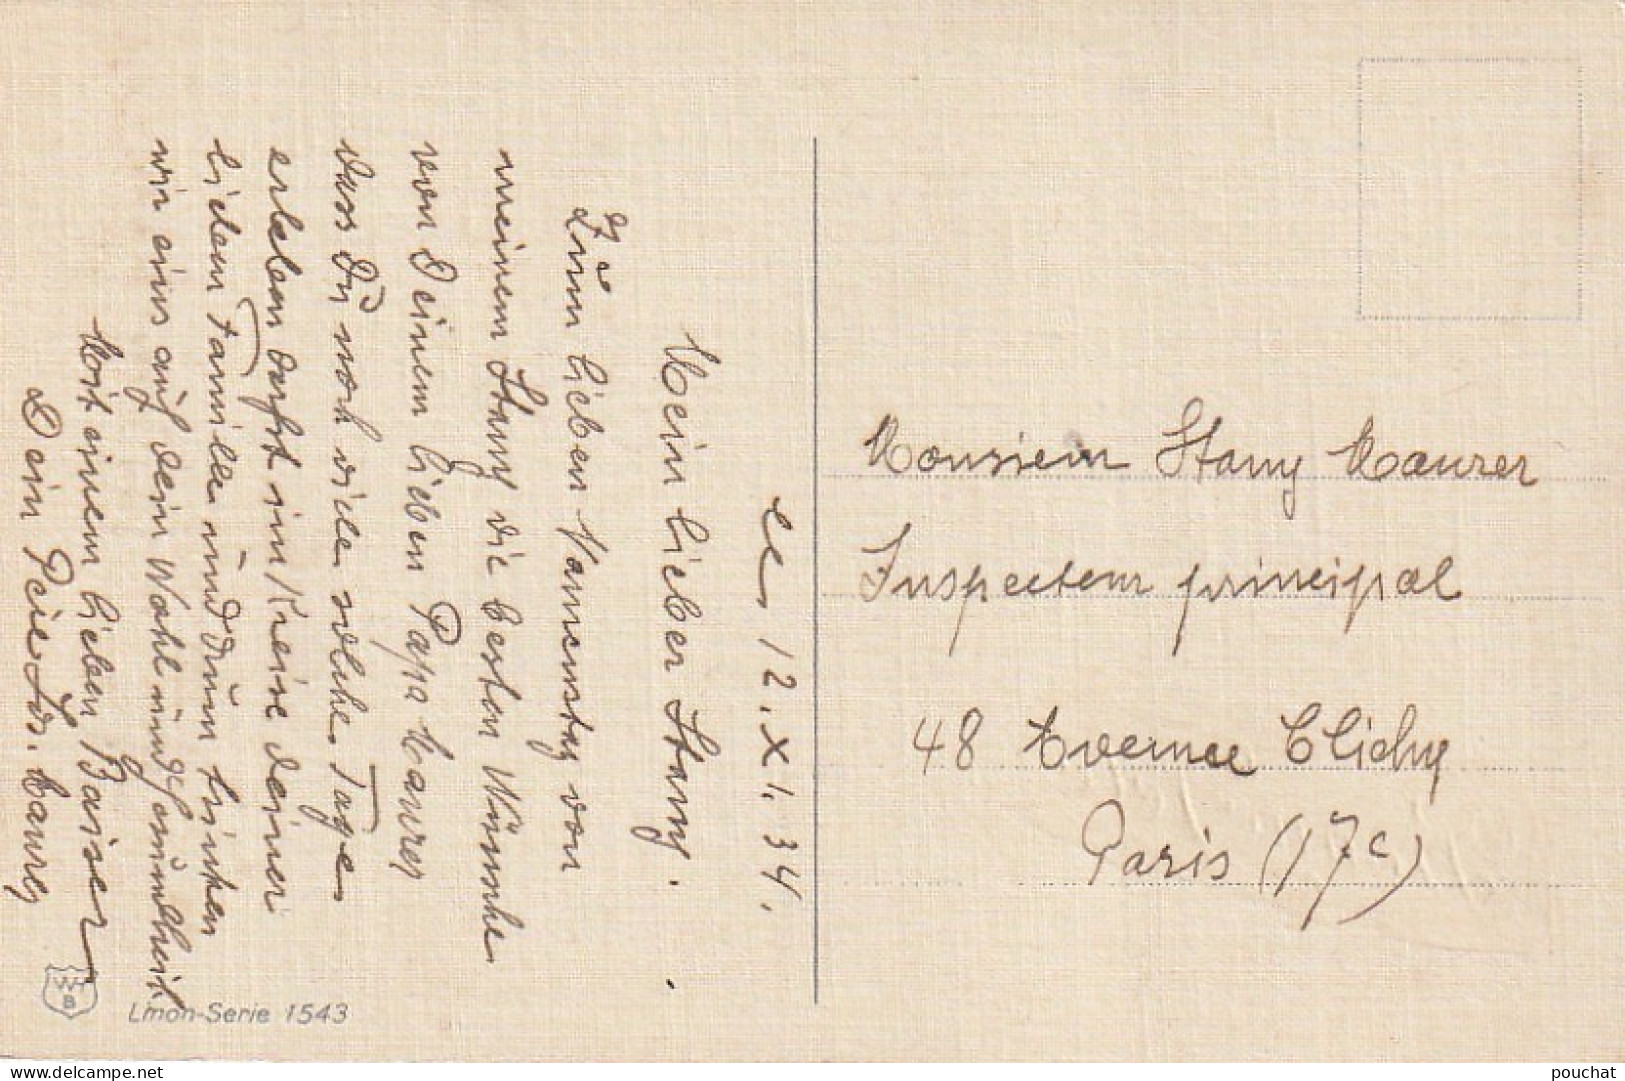 le 12.XI.34.
Mein lieber Stany.
Zum lieben Namenstag von
meinem Stany die besten Wünsche
von Deinem lieben Papa Maurer
dass Du noch viele solche Tage
erleben darfst im Kreise deiner
lieben Familie und dann trinken
wir eins auf dein Wohl und Gesundheit.
Mit einem lieben Baiser
Dein Père Jos. Maurer
Monsieur Stany Maurer
Inspecteur principal
48 Avenue Clichy
Paris (17e)
WB
Lmon-Serie 1543
delcampe.net
pouchat